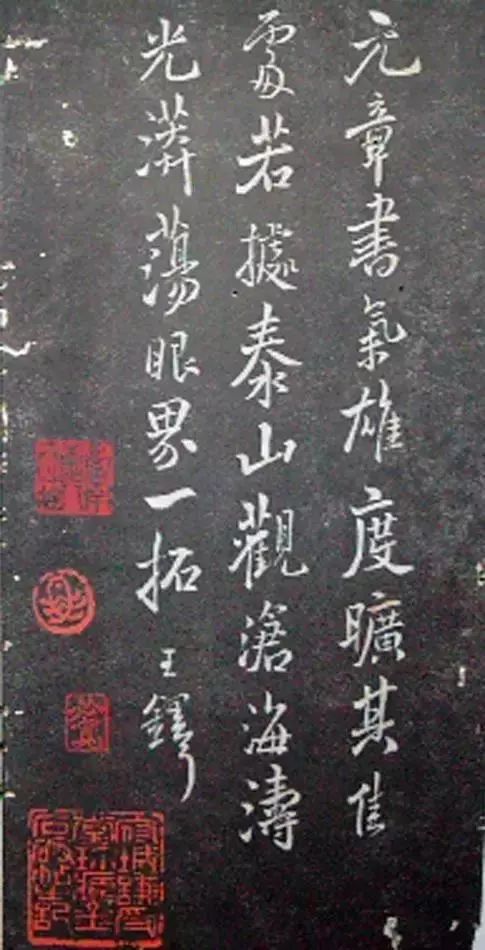 元章書氣雄度曠其佳
處若據泰山觀滄海濤
光漭蕩眼界一拓王鐸